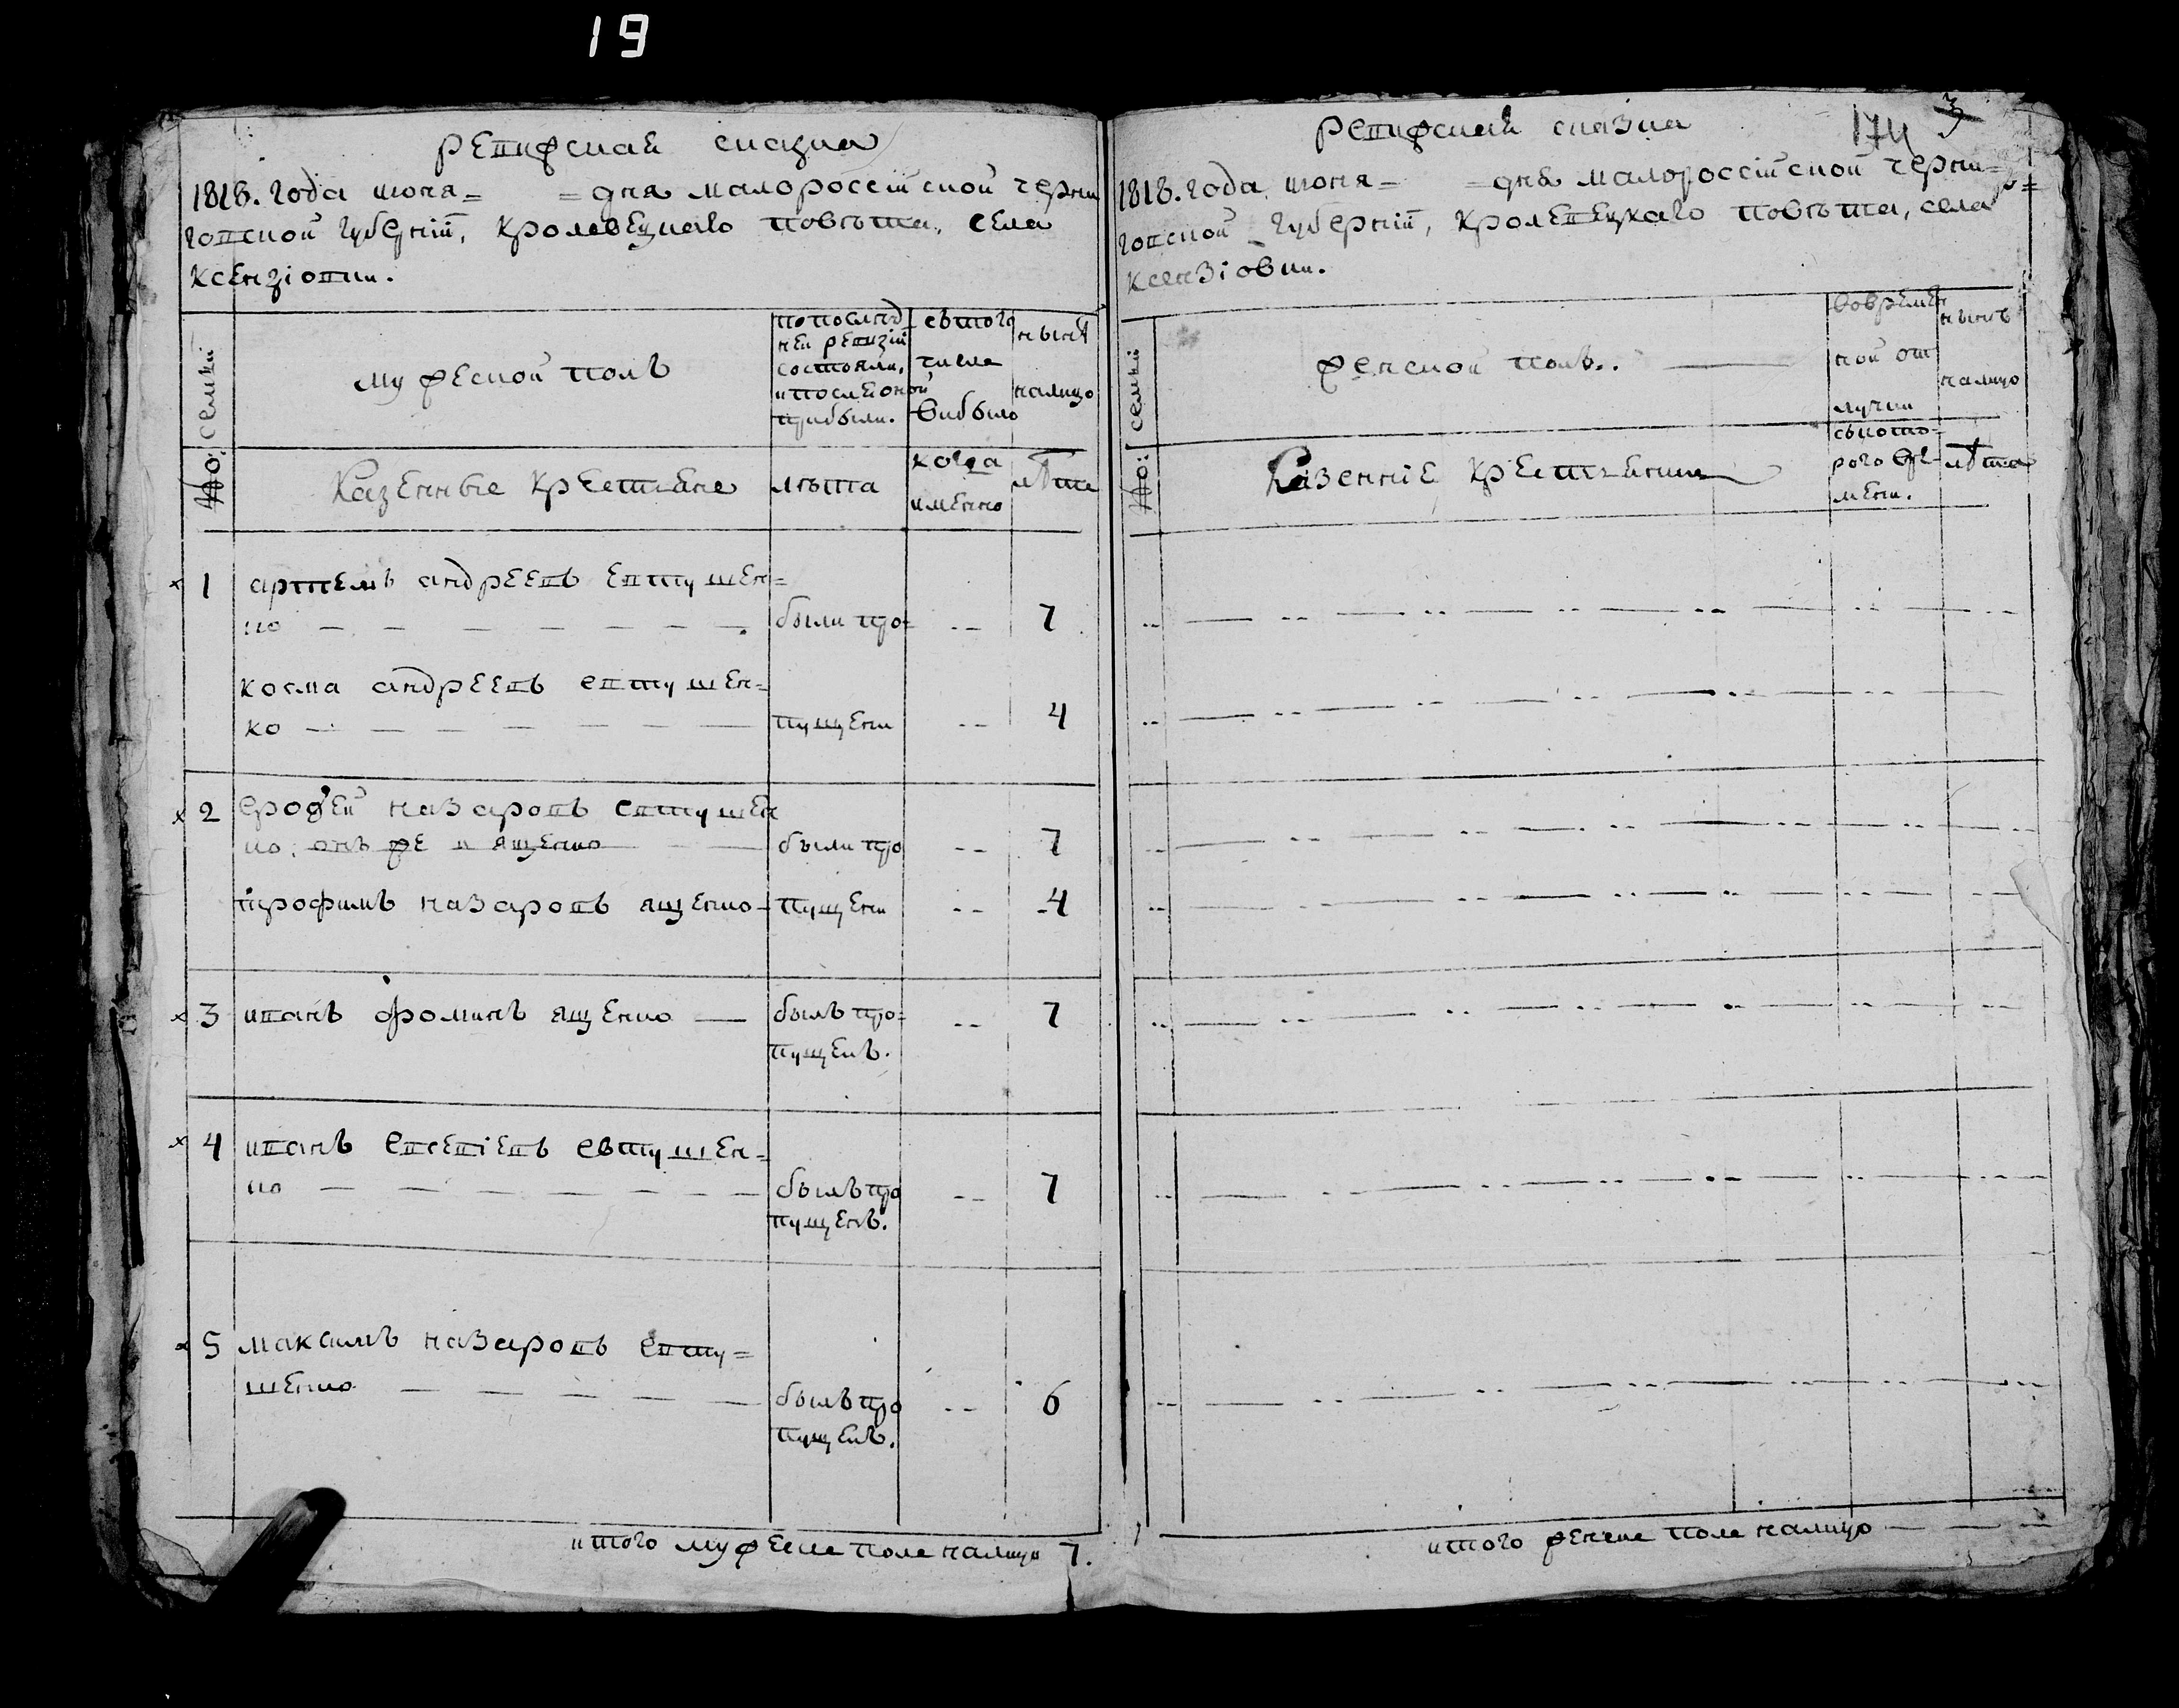 19
Ревижская сказка
1818. года июня= =дня малороссійской черни
говской губерніи, кролевецкаго повѣта, села
Ксензіовки.
№: семьи
мужеской полъ
попослѣд
ней ревизіи
состояли,
ипослѣоной
прибыли.
сътого
числа
выбыло
нынѣ
налицо
Казенные крестьяне
лѣта
когда
именно
лѣта
1 артемъ андреевъ Евтушен=
ко были про= -- 7
косма андреевъ евтушен=
ко пущени -- 4
2 ерофей назаровъ евтушен
ко, онъ же и ященко были про -- 7
трофимъ назаровъ ященко пущени -- 4
3 иванъ фоминъ ященко былъ про= -- 7
пущенъ.
4 иванъ Евсевіевъ евтушен=
ко былъ про -- 7
пущенъ.
5 максимъ назаровъ Евту=
шенко былъ про -- 6
пущенъ.
итого мужеска пола налицо 7.
Ревижская сказка
174 3
1818. года июня= =дня малороссійской черни=
говской губерніи, кролевецкаго повѣта, села
ксензіовки.
№: семьи
женской полъ..
вовремен
ной от
лучки
нынѣ
налицо
Казенніе крестьянки
сыкото=
рого вре=
мени.
лѣта
итого женска пола налицо